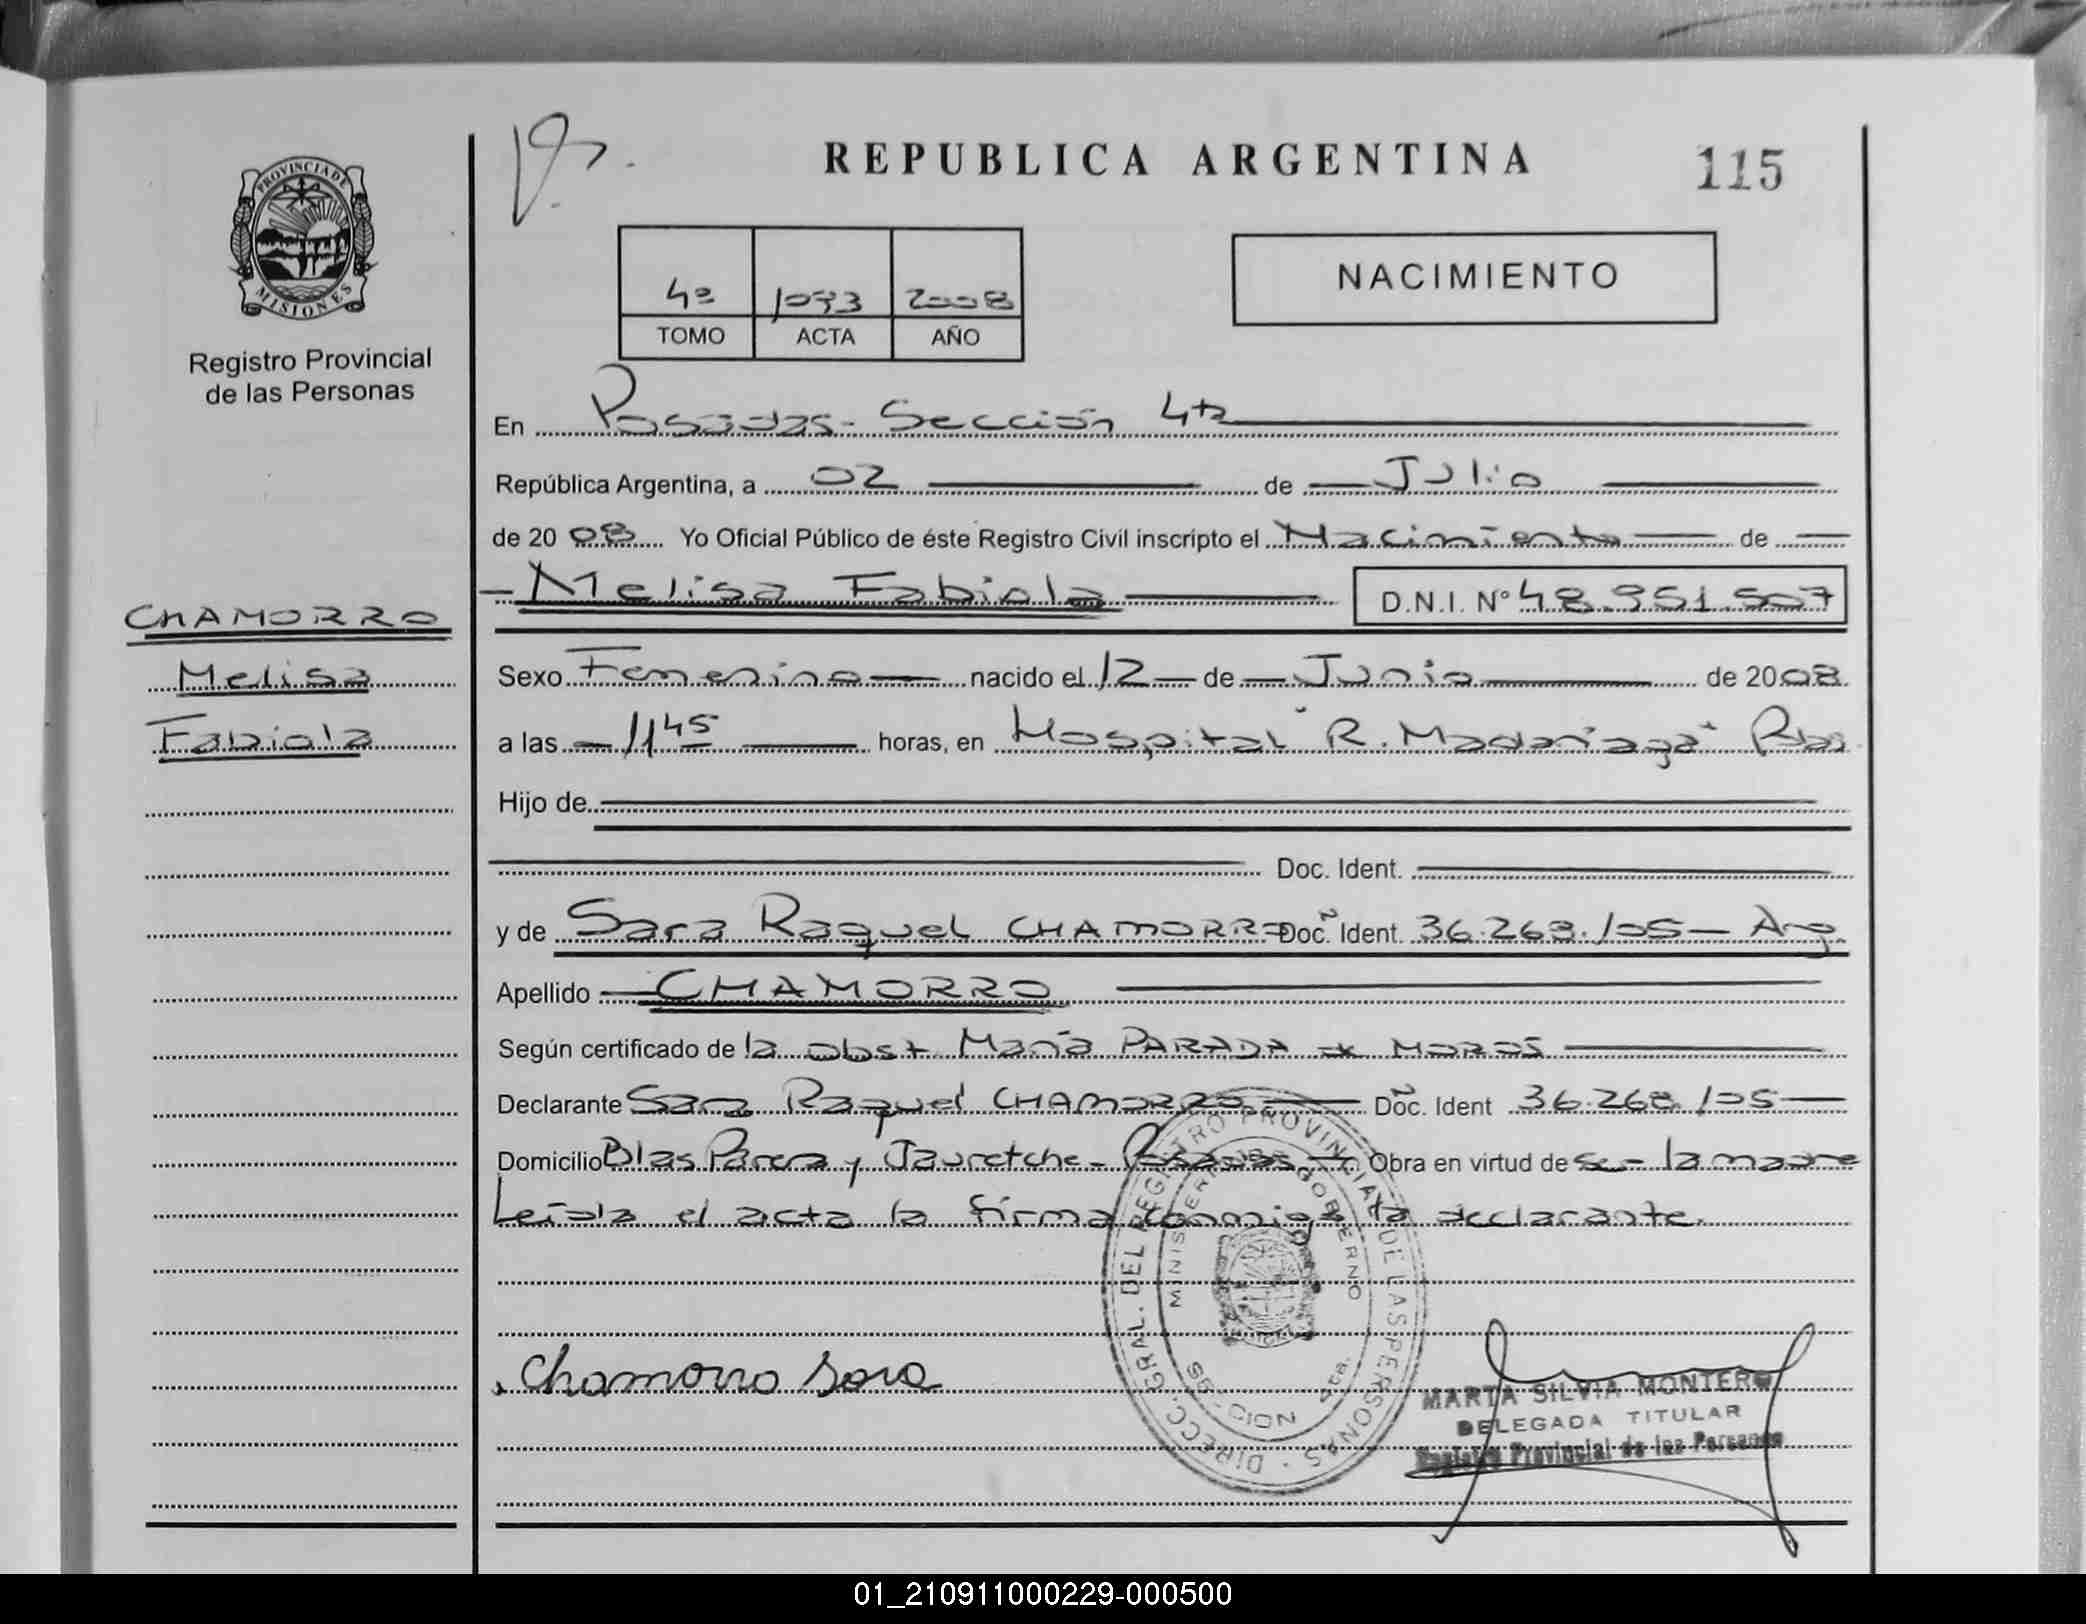 REPUBLICA ARGENTINA
115
PROVINCIA DE
MISIONES
Registro Provincial
de las Personas
NACIMIENTO
4º 1093 2008
TOMO ACTA AÑO
En Posadas - Sección 4ta
República Argentina, a 02 de Julio
de 2008 Yo Oficial Público de éste Registro Civil inscripto el Nacimiento de
Melisa Fabiola D.N.I. Nº 48.951.507
CHAMORRO
Melisa
Fabiola
Sexo Femenino nacido el 12 de Junio de 2008
a las 11 45 horas, en Hospital "R. Madariaga" Pdas
Hijo de
Doc. Ident.
y de Sara Raquel CHAMORRO Doc. Ident. 36.268.105 - Arg.
Apellido CHAMORRO
Según certificado de la obst María PARADA de MOROS
Declarante Sara Raquel CHAMORRO Doc. Ident 36.268.105
Domicilio Blas Parera y Jauretche - Posadas. Obra en virtud de se - la madre
Leída el acta la firma conmigo la declarante.
DIREC. GRAL. DEL REGISTRO PROVINCIAL DE LAS PERSONAS
MINISTERIO DE GOBIERNO
Chamorro Sara
MARTA SILVIA MONTERO
DELEGADA TITULAR
Registro Provincial de las Personas
01_210911000229-000500